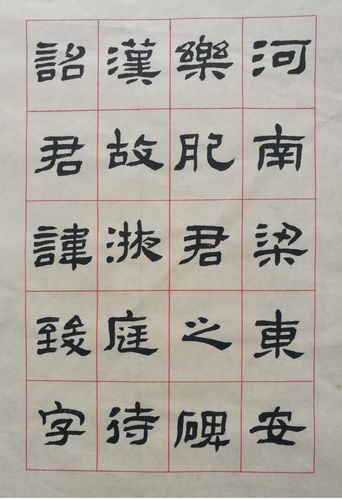 河南梁東安
樂肥君之碑
漢故掖庭待
詔君諱致字